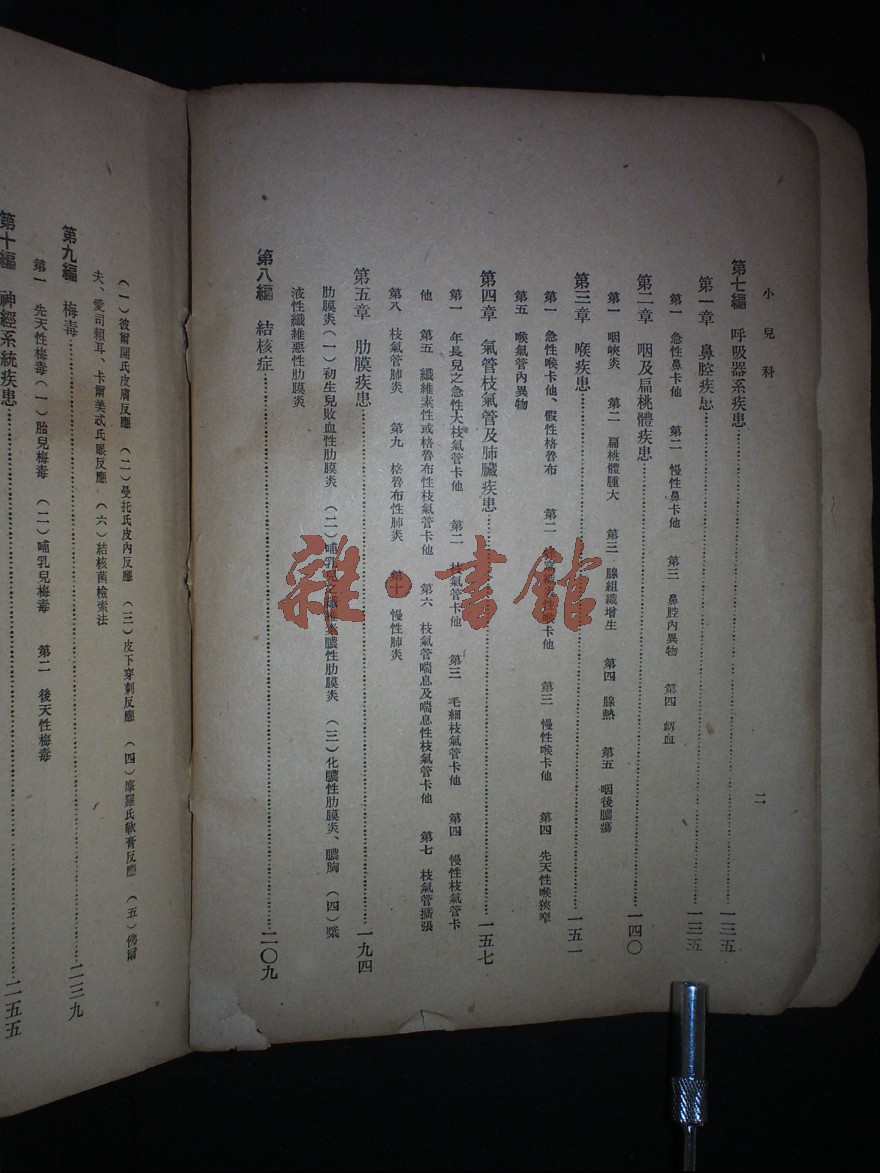 小兒科
二
第七編 呼吸器系疾患……一三五
第一章 鼻腔疾患……一三五
第一 急性鼻卡他 第二 慢性鼻卡他 第三 鼻腔內異物 第四 衂血
第二章 咽及扁桃體疾患……一四〇
第一 咽峽炎 第二 扁桃體腫大 第三 腺組織增生 第四 腺熱 第五 咽後膿瘍
第三章 喉疾患……一五一
第一 急性喉卡他、假性格魯布 第二 喉卡他 第三 慢性喉卡他 第四 先天性喉狹窄
第五 喉氣管內異物
第四章 氣管枝氣管及肺臟疾患……一五七
第一 年長兒之急性大枝氣管卡他 第二 枝氣管卡他 第三 毛細枝氣管卡他 第四 慢性枝氣管卡
他 第五 纖維素性或格魯布性枝氣管卡他 第六 枝氣管喘息及喘息性枝氣管卡他 第七 枝氣管擴張
第八 枝氣管肺炎 第九 格魯布性肺炎 第十 慢性肺炎
第五章 肋膜疾患……一九四
肋膜炎(一)初生兒敗血性肋膜炎 (二)哺乳兒之纖維素膿性肋膜炎 (三)化膿性肋膜炎、膿胸 (四)漿
液性纖維惡性肋膜炎
第八編 結核症……二〇九
(一)彼爾開氏皮膚反應 (二)曼托氏皮內反應 (三)皮下穿刺反應 (四)摩羅氏軟膏反應 (五)佛爾
夫、愛司賴耳、卡爾美忒氏眼反應 (六)結核菌檢索法
第九編 梅毒……二三九
第一 先天性梅毒(一)胎兒梅毒 (二)哺乳兒梅毒 第二 後天性梅毒
第十編 神經系統疾患……二五五
雜·書館